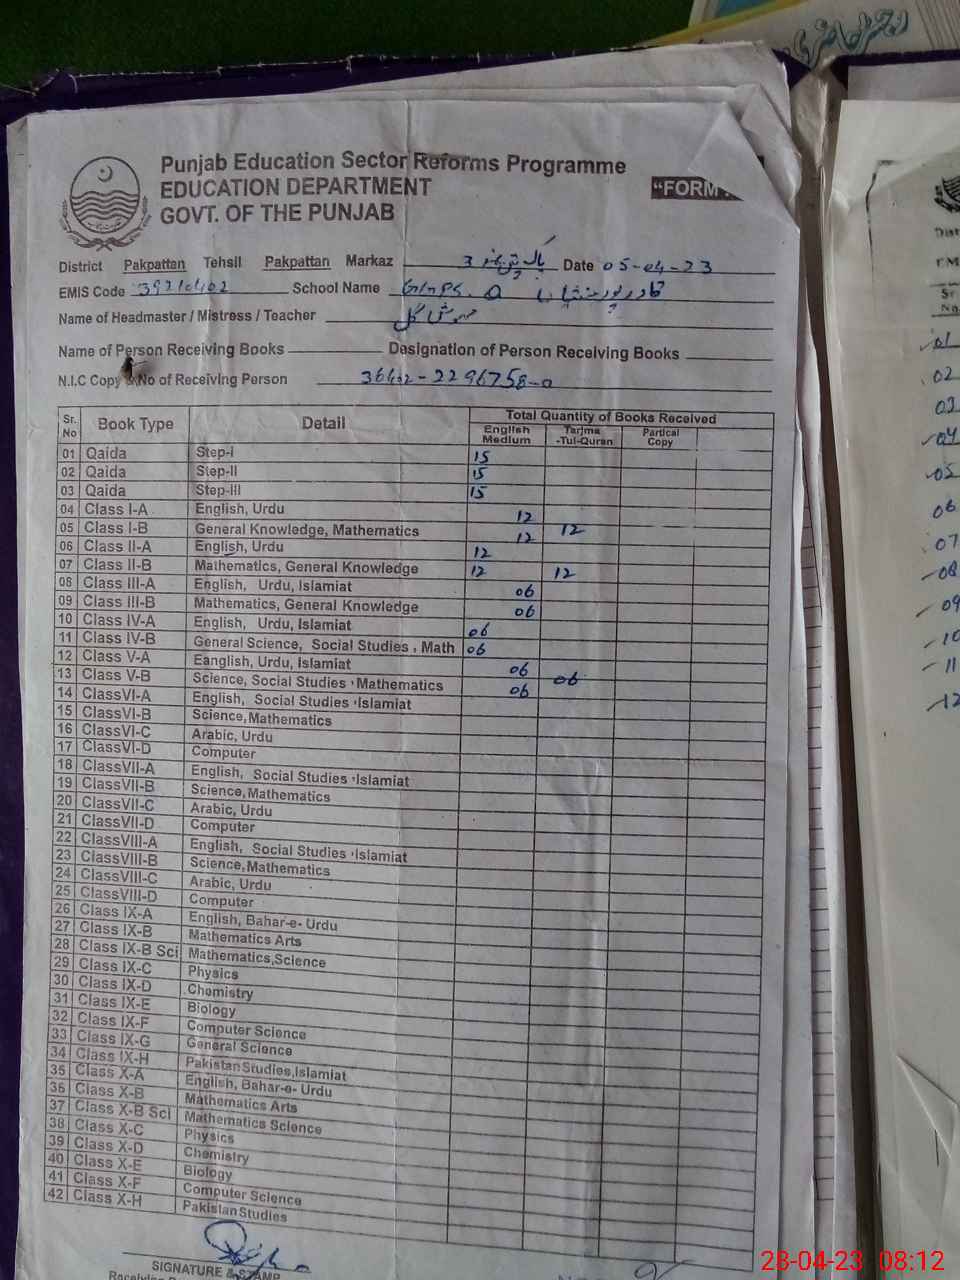 Punjab Education Sector Reforms Programme
EDUCATION DEPARTMENT
GOVT. OF THE PUNJAB
"FORM
District Pakpattan Tehsil Pakpattan Markaz 3 Date 05-04-23
EMIS Code 39210402 School Name
Name of Headmaster / Mistress / Teacher
Name of Person Receiving Books Designation of Person Receiving Books
N.I.C Copy & No of Receiving Person 36402-2296758-0
Sr. No Book Type Detail Total Quantity of Books Received
English Medium Tarjma -Tul-Quran Partical Copy
01 Qaida Step-I 15
02 Qaida Step-II 15
03 Qaida Step-III 15
04 Class I-A English, Urdu 12
05 Class I-B General Knowledge, Mathematics 12 12
06 Class II-A English, Urdu 12
07 Class II-B Mathematics, General Knowledge 12 12
08 Class III-A English, Urdu, Islamiat 06
09 Class III-B Mathematics, General Knowledge 06
10 Class IV-A English, Urdu, Islamiat 06
11 Class IV-B General Science, Social Studies , Math 06
12 Class V-A Eanglish, Urdu, Islamiat 06
13 Class V-B Science, Social Studies , Mathematics 06 06
14 ClassVI-A English, Social Studies , Islamiat
15 ClassVI-B Science,Mathematics
16 ClassVI-C Arabic, Urdu
17 ClassVI-D Computer
18 ClassVII-A English, Social Studies , Islamiat
19 ClassVII-B Science,Mathematics
20 ClassVII-C Arabic, Urdu
21 ClassVII-D Computer
22 ClassVIII-A English, Social Studies , Islamiat
23 ClassVIII-B Science,Mathematics
24 ClassVIII-C Arabic, Urdu
25 ClassVIII-D Computer
26 Class IX-A English, Bahar-e- Urdu
27 Class IX-B Mathematics Arts
28 Class IX-B Sci Mathematics,Science
29 Class IX-C Physics
30 Class IX-D Chemistry
31 Class IX-E Biology
32 Class IX-F Computer Science
33 Class IX-G General Science
34 Class IX-H Pakistan Studies,Islamiat
35 Class X-A English, Bahar-e- Urdu
36 Class X-B Mathematics Arts
37 Class X-B Sci Mathematics Science
38 Class X-C Physics
39 Class X-D Chemistry
40 Class X-E Biology
41 Class X-F Computer Science
42 Class X-H Pakistan Studies
SIGNATURE & STAMP
Dist
Sr
No.
01
02
03
04
05
06
07
08
09
10
11
12
28-04-23 08:12